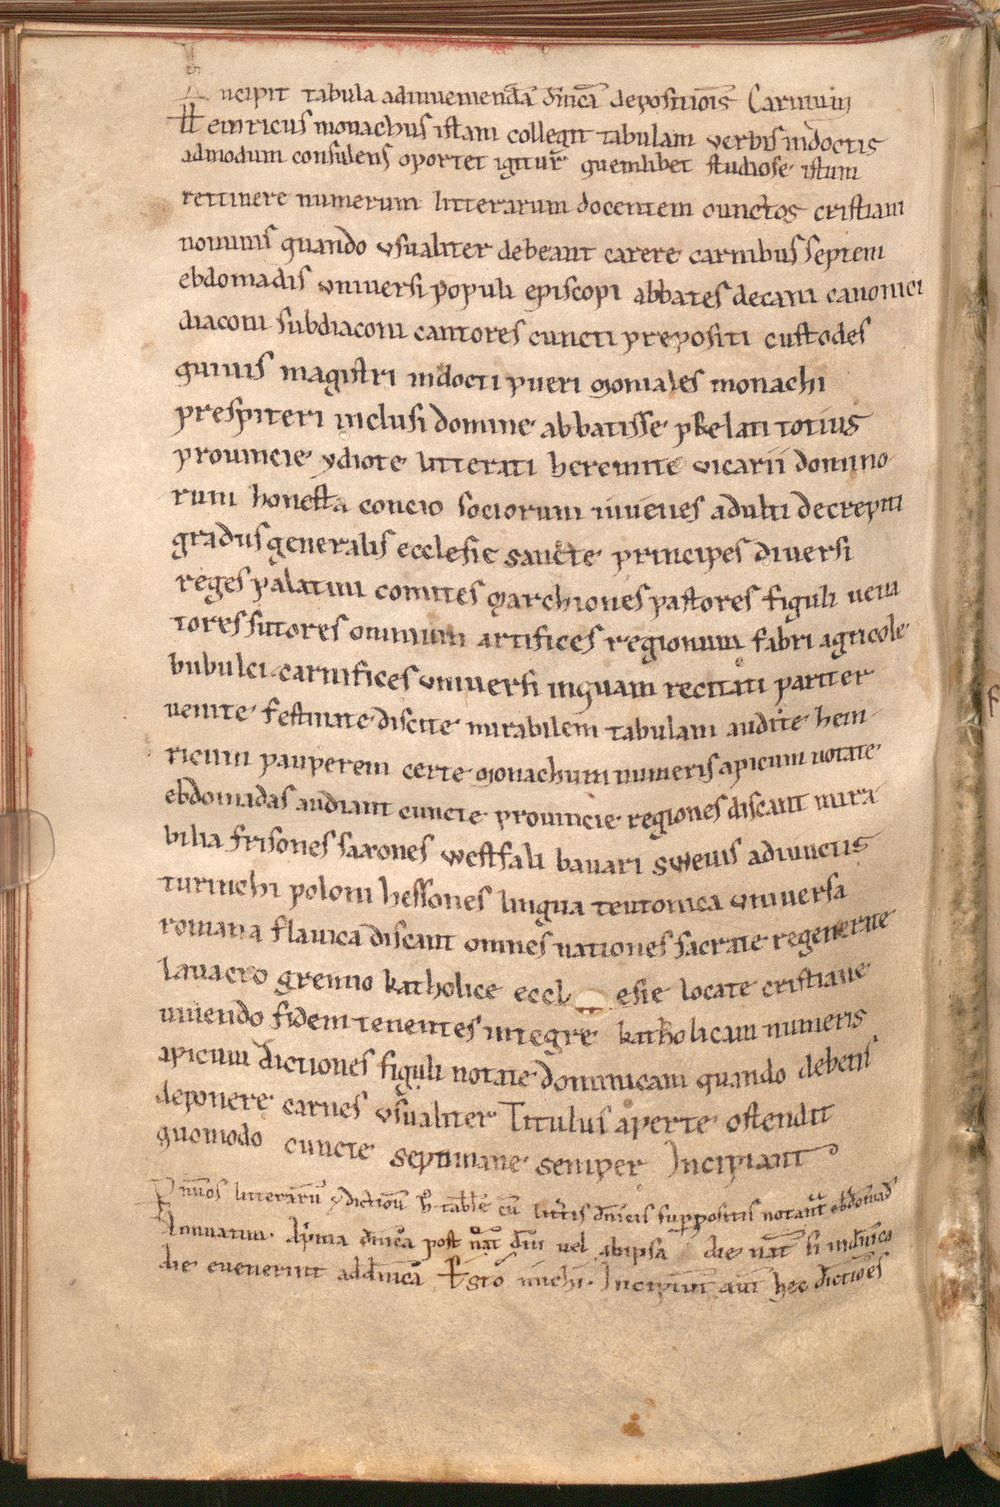 Incipit tabula ad inveniendā dn̄icā depositiōis Carnium
Heinricus monachus istam collegit tabulam verbis indoctis
admodum consulens oportet igitur quemlibet studiose istum
rettinere numerum litterarum docentem cunctos cristiani
nominis quando usualiter debeant carere carnibus septem
ebdomadis universi populi episcopi abbates decani canonici
diaconi subdiaconi cantores cuncti prepositi custodes
quivis magistri indocti pueri moniales monachi
prespiteri inclusi domine abbatisse prelati totius
provincie ydiote litterati heremite vicarii domino
rum honesta concio sociorum iuvenes adulti decrepiti
gradus generalis ecclesie sancte principes diversi
reges palatini comites marchiones pastores figuli vena
tores sutores omnium artifices regionum fabri agricole
bubulci carnifices universi inquam recitati pariter
venite festinate discite mirabilem tabulam audite hein
ricum pauperem certe monachum numeris apicum notate
ebdomadas audiant cuncte provincie regiones discant mira
bilia frisones saxones westfali bauari swevis adiunctis
turinchi poloni hessones lingua teutonica universa
romana slavica discant omnes nationes sacrate regenerate
lavacro gremio katholice eccl esie locate cristiane
vivendo fidem tenentes integre katholicam numeris
apicum dictiones figuli notate dominicam quando debetis
deponere carnes usualiter Titulus aperte ostendit
quomodo cuncte septimane semper Incipiunt
numos litterarū dictionū h tabłe cū littris dn̄icis suppositis notant̄ ebdomad
Annuatim. Aprima dn̄ica post nat̄ dni vel abipsa die nat̄ si indn̄ica
die evenerint ad dn̄icā Esto michi. Incipiunt aut̄ hec dictiōes